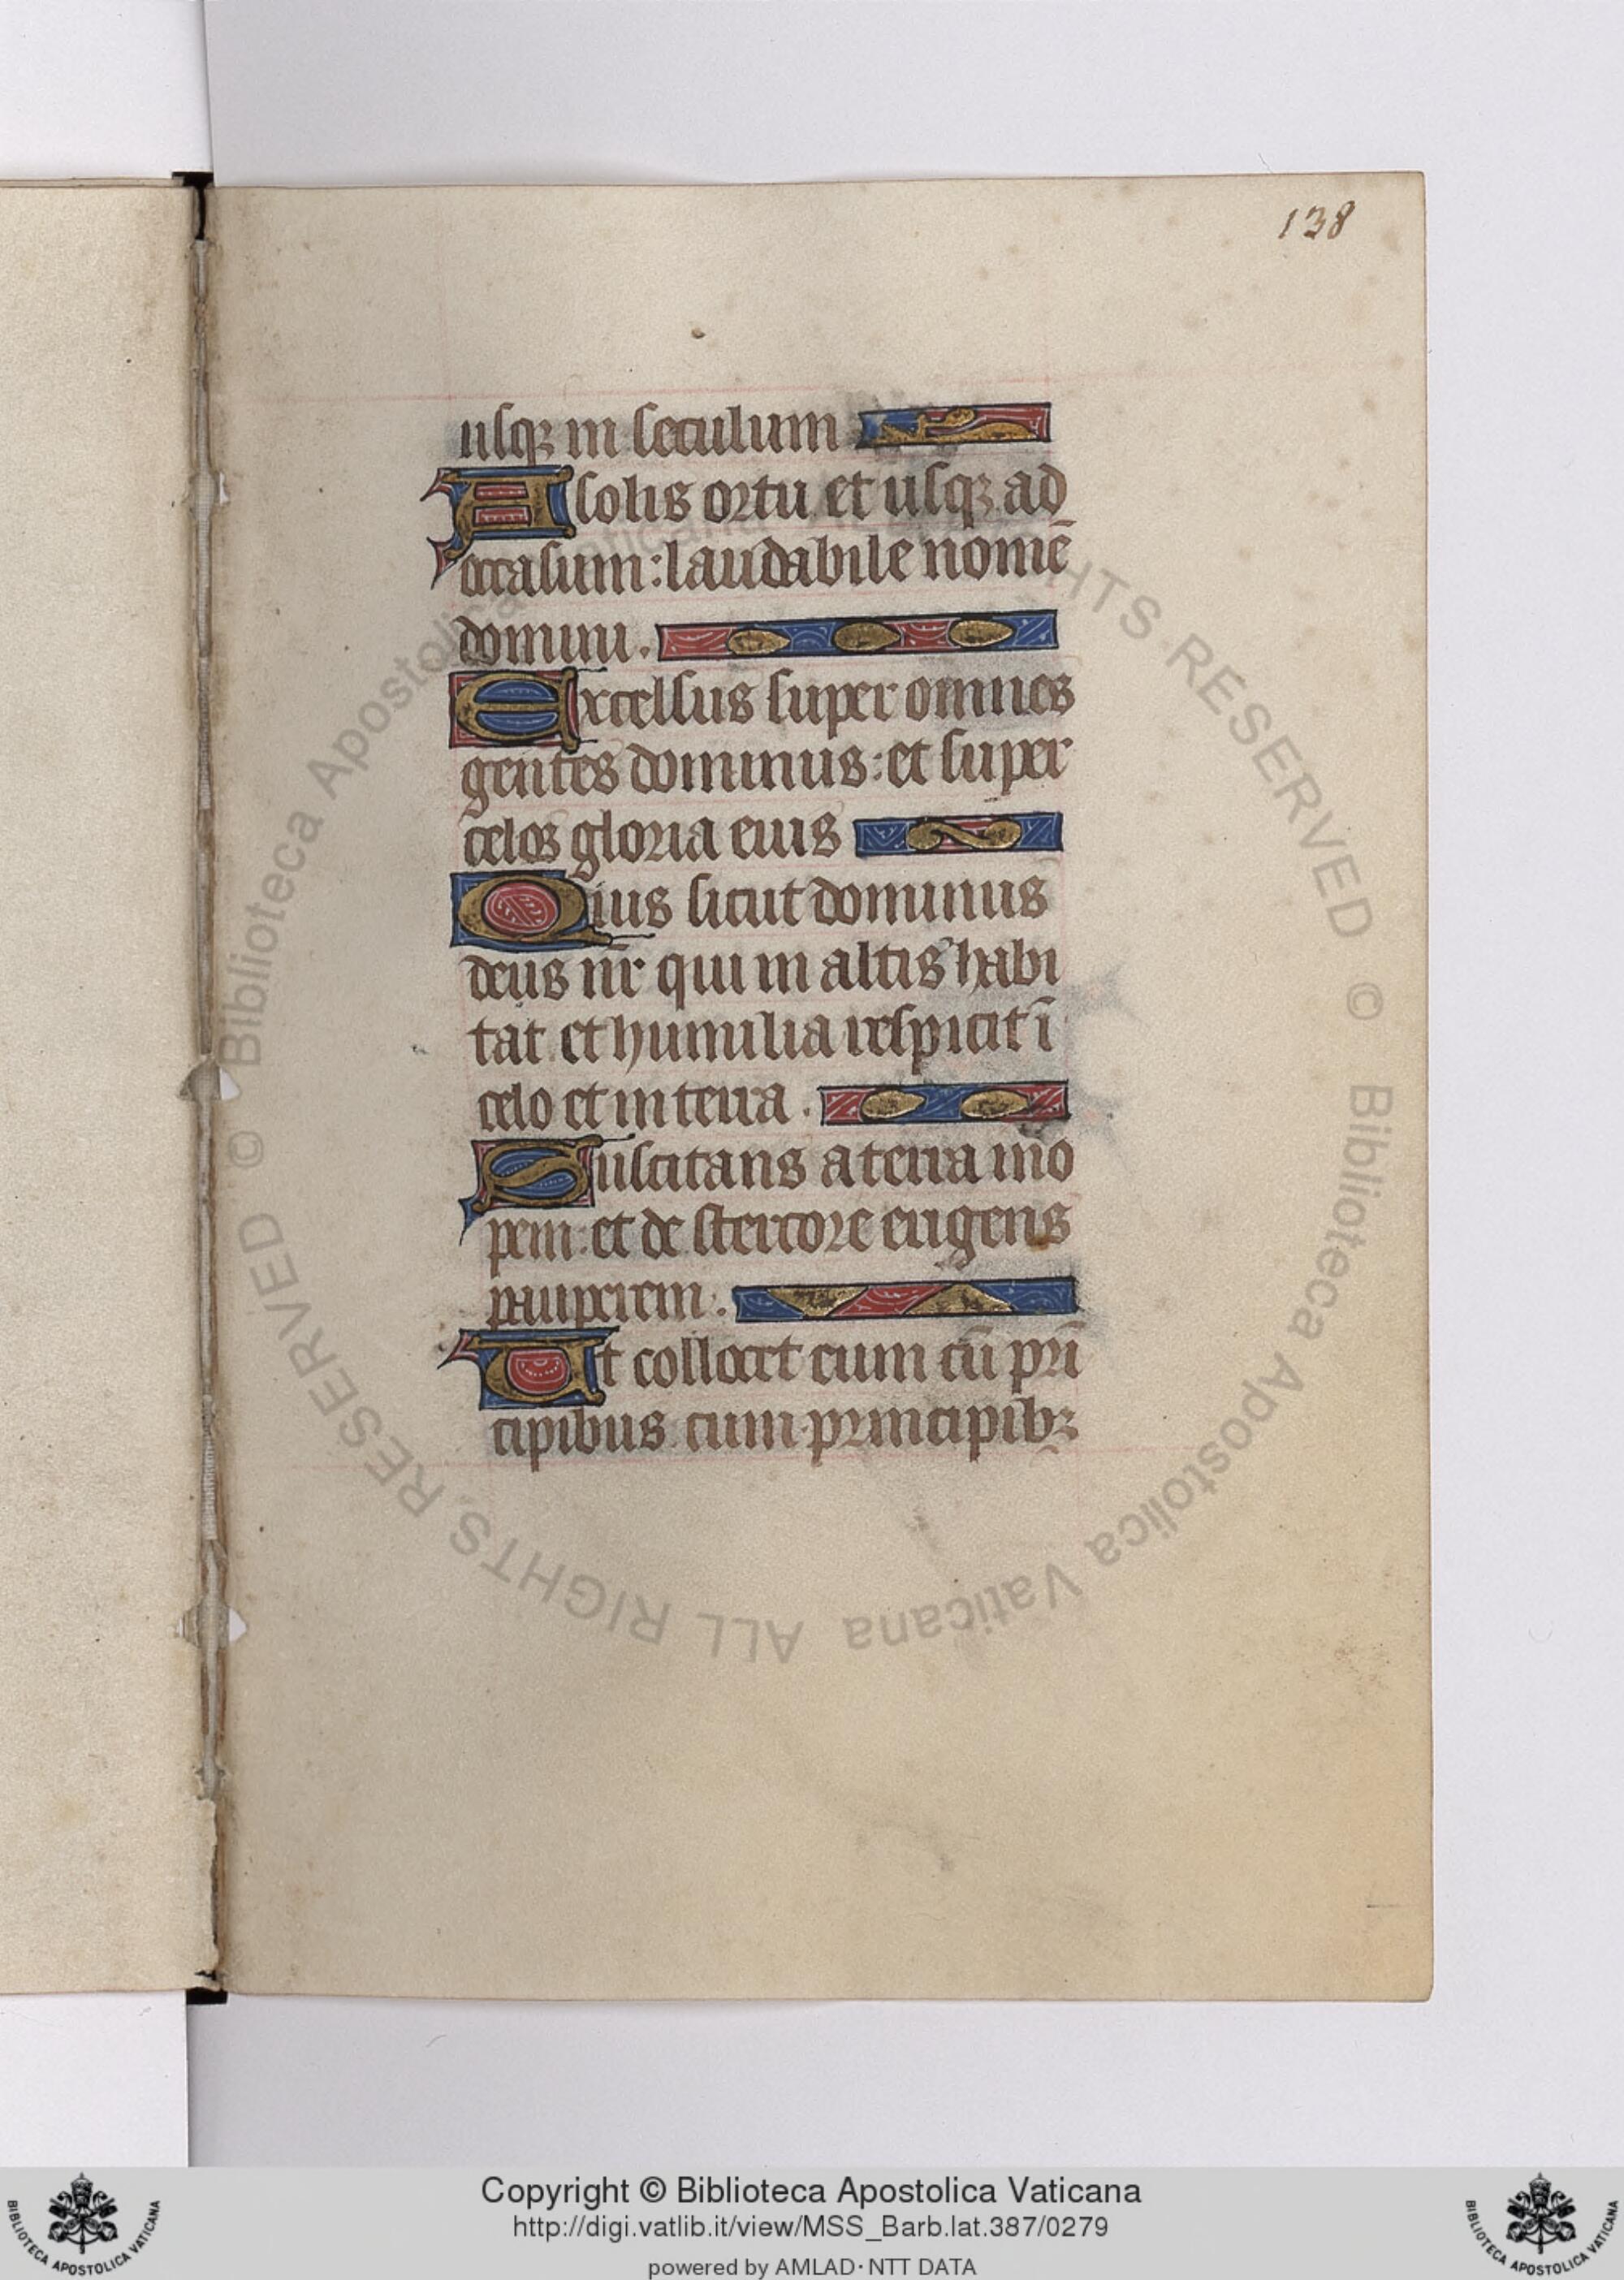 138
usqꝫ in seculum
A solis ortu et usqꝫ ad
occasum: laudabile nomē
domini.
Excelsus super omnes
gentes dominus: et super
celos gloria eius
Qius sicut dominus
deus nr̄ qui in altis habi
tat et humilia respicit ī
celo et in terra.
Suscitans a terra ino
pem: et de stercore erigens
pauperem.
Ut collocet eum cū pri
cipibus cum principibꝫ
© Biblioteca Apostolica Vaticana ALL RIGHTS RESERVED
© Biblioteca Apostolica Vaticana ALL RIGHTS RESERVED
Copyright © Biblioteca Apostolica Vaticana
http://digi.vatlib.it/view/MSS_Barb.lat.387/0279
powered by AMLAD·NTT DATA
BIBLIOTECA APOSTOLICA VATICANA
BIBLIOTECA APOSTOLICA VATICANA